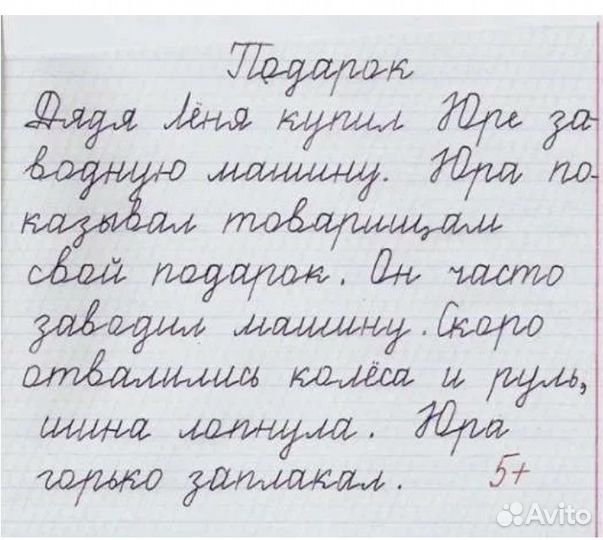 Подарок
Дядя Лёня купил Юре за-
водную машину. Юра по-
казывал товарищам
свой подарок. Он часто
заводил машину. Скоро
отвалились колёса и руль,
шина лопнула. Юра
горько заплакал. 5+
Avito